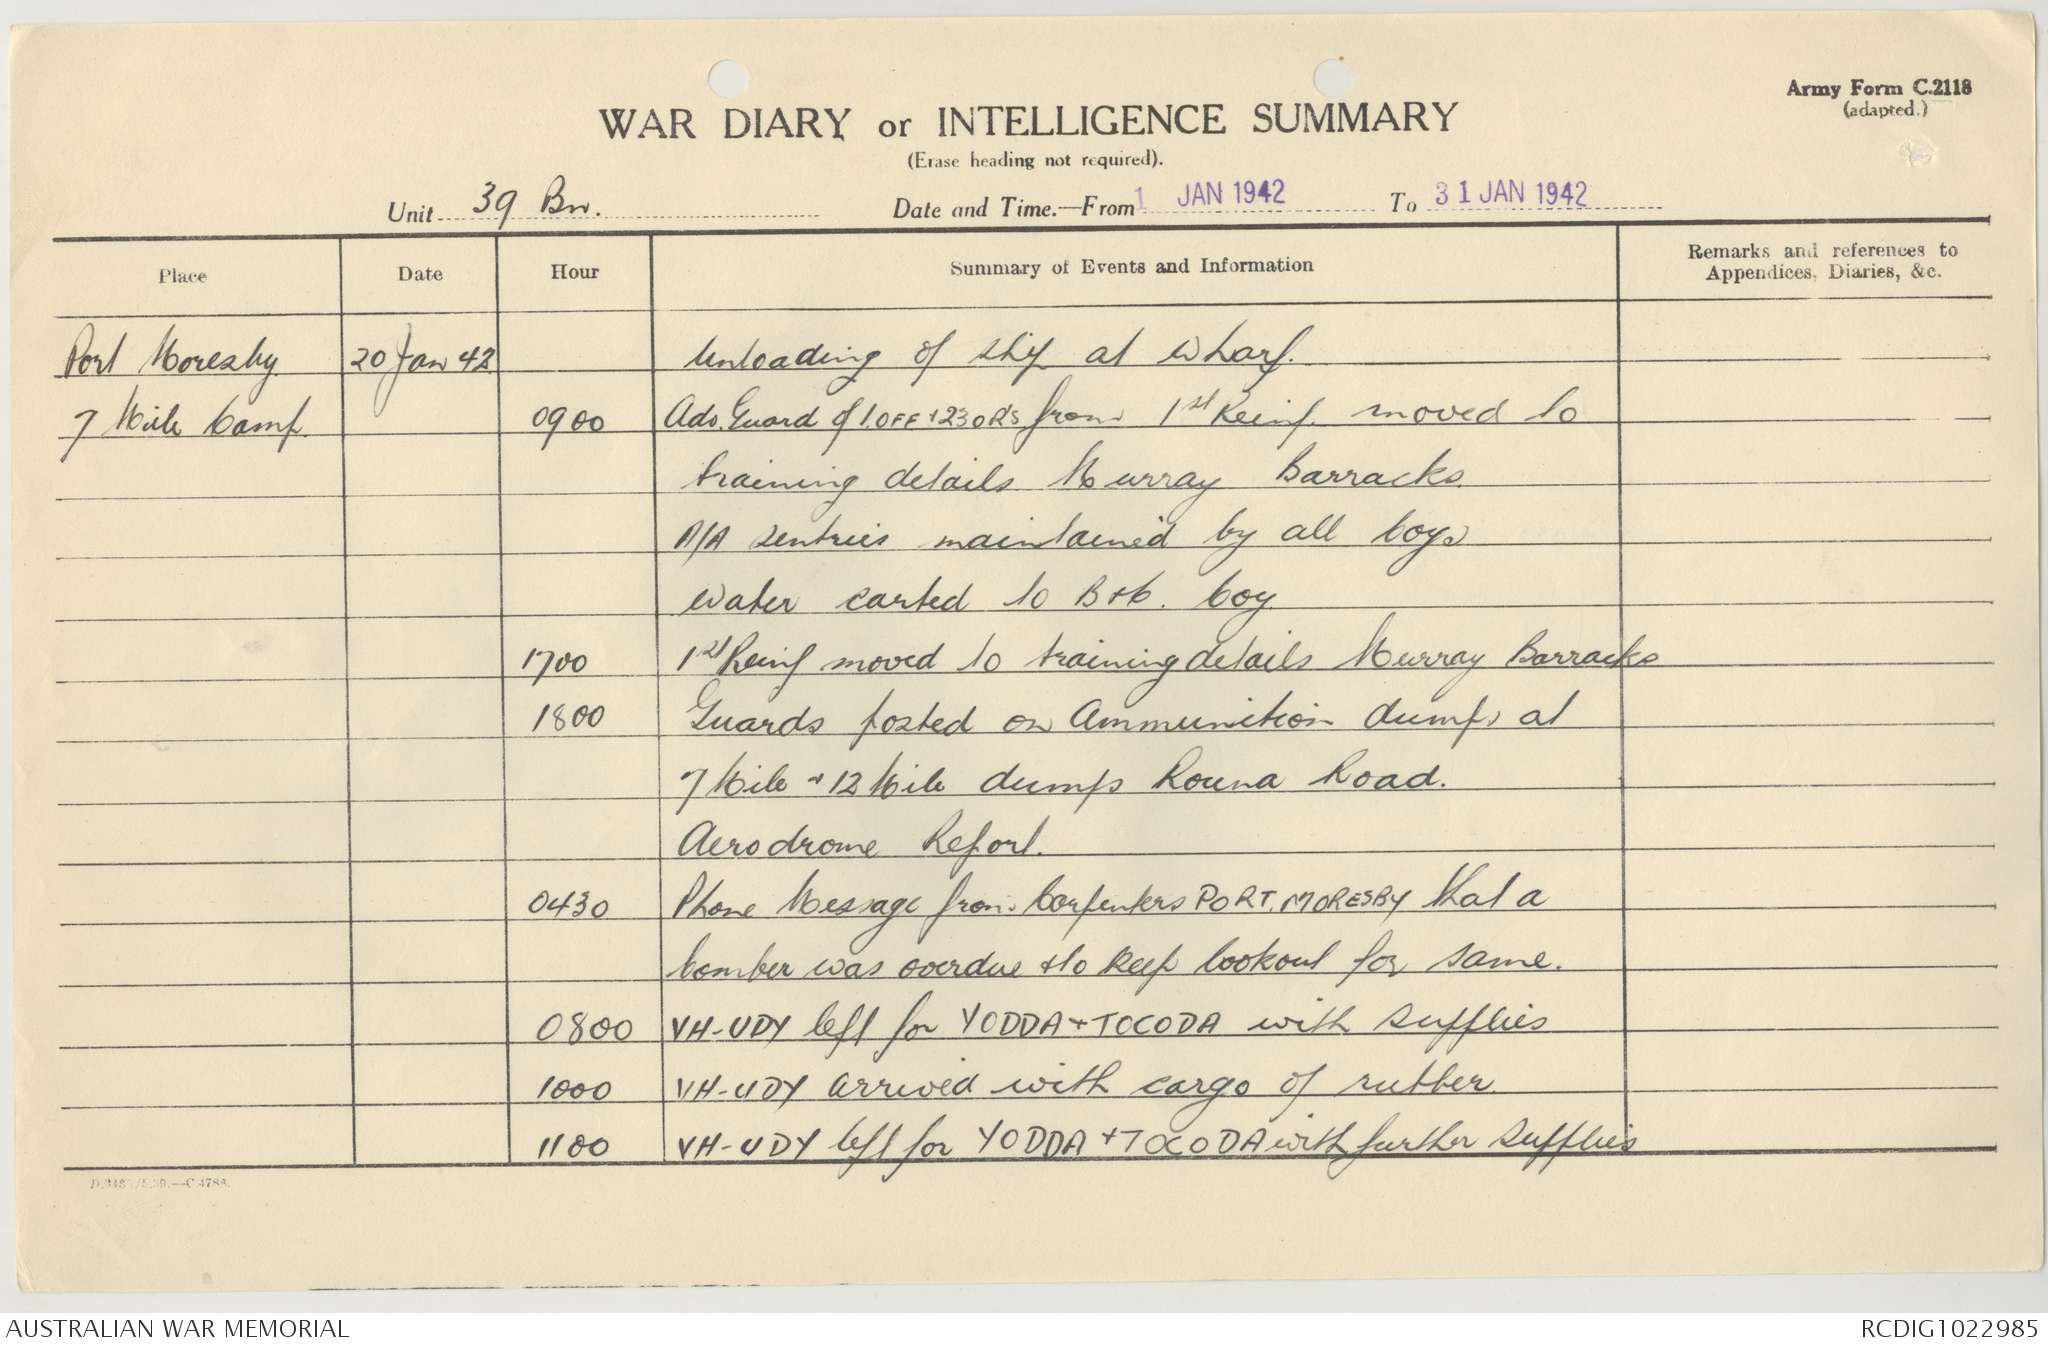 Army Form C.2118
(adapted.)
WAR DIARY or INTELLIGENCE SUMMARY
(Erase heading not required).
Unit 39 Bn. Date and Time.—From 1 JAN 1942 To 31 JAN 1942
Place Date Hour Summary of Events and Information Remarks and references to Appendices, Diaries, &c.
Port Moresby 20 Jan 42 Unloading of ship at Wharf.
7 Mile Camp. 0900 Adv. Guard of 1.OFF + 23 OR's from 1st Reinf. moved to
training details Murray Barracks.
A/A sentries maintained by all Coys
Water carted to B + C. Coy
1700 1st Reinf moved to training details Murray Barracks
1800 Guards posted on Ammunition dumps at
7 Mile + 12 Mile dumps Rouna Road.
Aerodrome Report.
0430 Phone Message from Carpenters PORT. MORESBY that a
bomber was overdue + to keep lookout for same.
0800 VH-UDY left for YODDA + TOCODA with supplies
1000 VH-UDY arrived with cargo of rubber.
1100 VH-UDY left for YODDA + TOCODA with further supplies
AUSTRALIAN WAR MEMORIAL RCDIG1022985